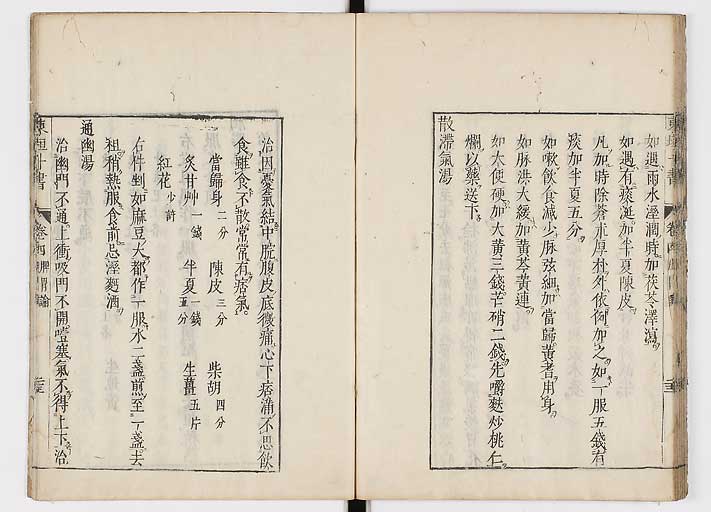 東垣十書
如遇雨水溼潤時加茯苓澤瀉
如遇有痰涎加半夏陳皮
凡加時除蒼朮厚朴外依例加之如一服五錢有
痰加半夏五分
如嗽飲食減少脉弦細加當歸黃耆用身
如脉洪大緩加黃芩黃連
如大便硬加大黃三錢芒硝二錢先嚼麩炒桃仁
爛以藥送下
散滯氣湯
治因憂氣結中脘腹皮底微痛心下痞滿不思飲
食雖食不散常常有痞氣
當歸身二分 陳皮三分 柴胡四分
炙甘艸一錢 半夏一錢五分 生薑五片
紅花少許
右件剉如麻豆大都作一服水二盞煎至一盞去
柤稍熱服食前忌溼麪酒
通幽湯
治幽門不通上衝吸門不開噎塞氣不得上下治
東垣十書 卷四脾胃論